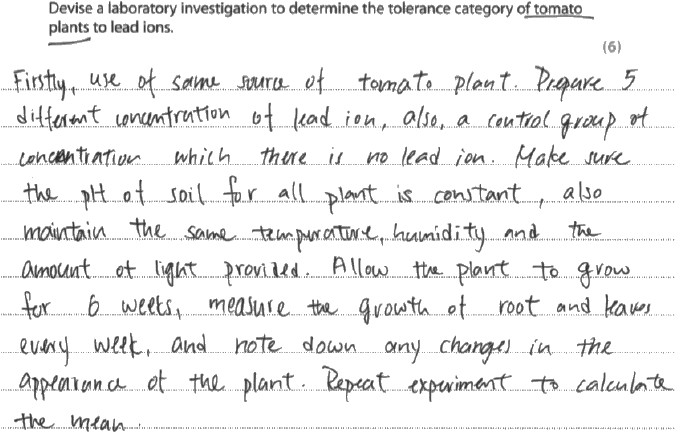 Devise a laboratory investigation to determine the tolerance category of tomato
plants to lead ions.
(6)
Firstly, use of same source of tomato plant. Prepare 5
different concentration of lead ion, also, a control group of
concentration which there is no lead ion. Make sure
the pH of soil for all plant is constant, also
maintain the same temperature, humidity and the
amount of light provided. Allow the plant to grow
for 6 weeks, measure the growth of root and leaves
every week, and note down any changes in the
appearance of the plant. Repeat experiment to calculate
the mean.